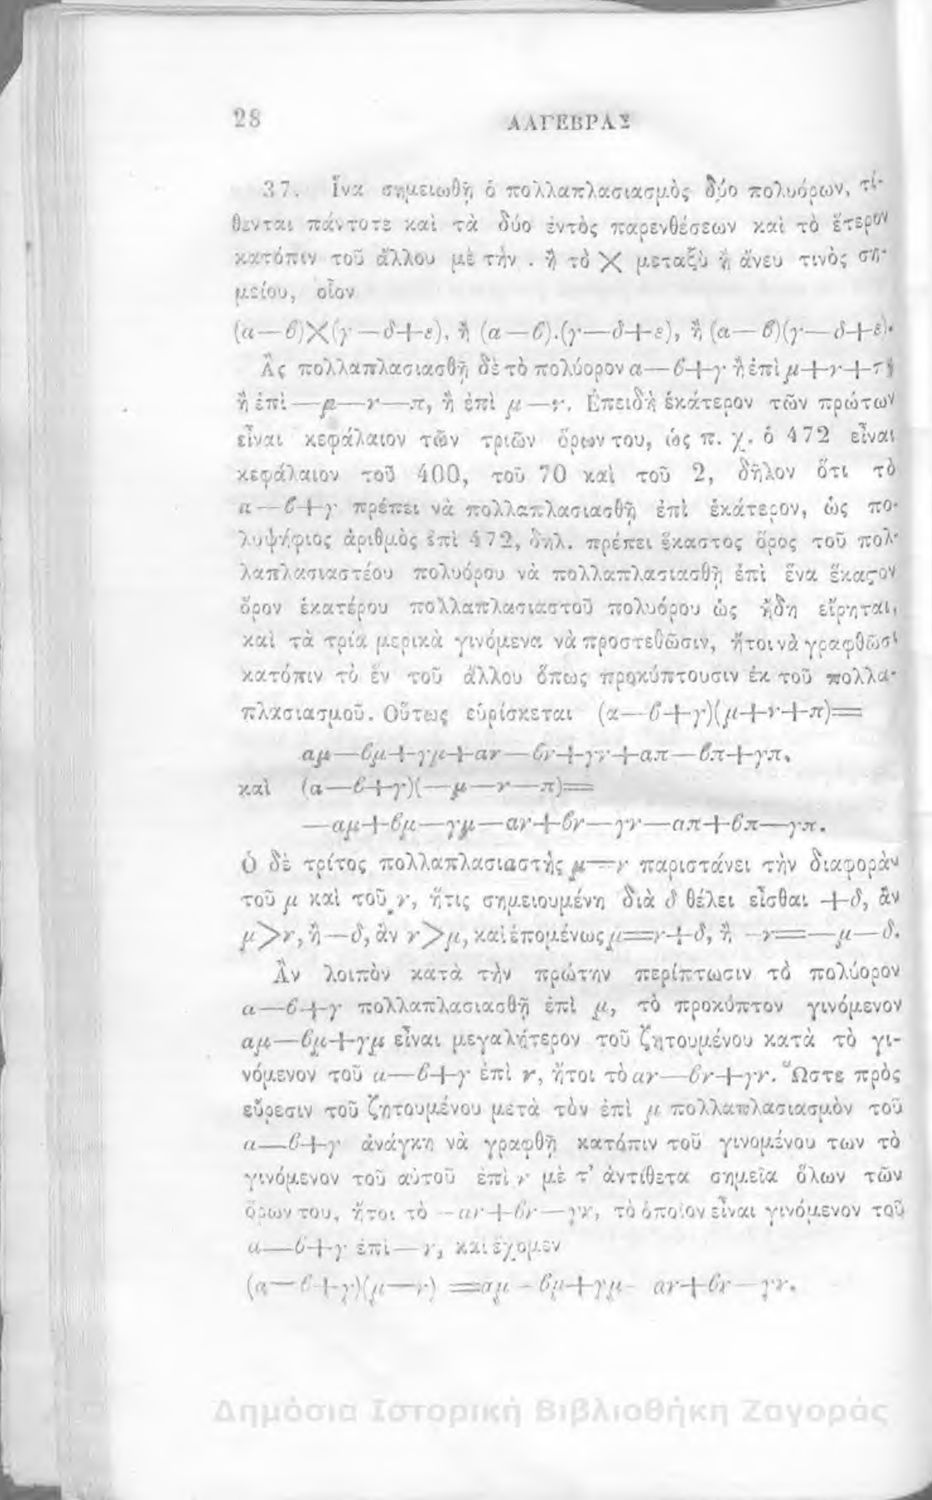 28 ΑΛΓΕΒΡΑΣ
37. Ἵνα σημειωθῇ ὁ πολλαπλασιασμὸς δύο πολυόρων, τί-
θενται πάντοτε καὶ τὰ δύο ἐντὸς παρενθέσεων καὶ τὸ ἕτερον
κατόπιν τοῦ ἄλλου μὲ τὴν . ἢ τὸ × μεταξὺ ἢ ἄνευ τινὸς ση-
μείου, οἷον
(α—β)×(γ—δ+ε), ἢ (α—β).(γ—δ+ε), ἢ (α—β)(γ—δ+ε).
Ἂς πολλαπλασιασθῇ δὲ τὸ πολύορον α—β+γ ἢ ἐπὶ μ+ν+π
ἢ ἐπὶ —μ—ν—π, ἢ ἐπὶ μ—ν. Ἐπειδὴ ἑκάτερον τῶν πρώτων
εἶναι κεφάλαιον τῶν τριῶν ὅρων του, ὡς π. χ. ὁ 472 εἶναι
κεφάλαιον τοῦ 400, τοῦ 70 καὶ τοῦ 2, δῆλον ὅτι τὸ
α—β+γ πρέπει νὰ πολλαπλασιασθῇ ἐπὶ ἑκάτερον, ὡς πο-
λυψήφιος ἀριθμὸς ἐπὶ 472, δηλ. πρέπει ἕκαστος ὅρος τοῦ πολ-
λαπλασιαστέου πολυόρου νὰ πολλαπλασιασθῇ ἐπὶ ἕνα ἕκαστον
ὅρον ἑκατέρου πολλαπλασιαστοῦ πολυόρου ὡς ἤδη εἴρηται,
καὶ τὰ τρία μερικὰ γινόμενα νὰ προστεθῶσιν, ἤτοι νὰ γραφθῶσι
κατόπιν τὸ ἓν τοῦ ἄλλου ὅπως προκύπτουσιν ἐκ τοῦ πολλα-
πλασιασμοῦ. Οὕτως εὑρίσκεται (α—β+γ)(μ+ν+π)=
αμ—βμ+γμ+αν—βν+γν+απ—βπ+γπ.
καὶ (α—β+γ)(—μ—ν—π)=
—αμ+βμ—γμ—αν+βν—γν—απ+βπ—γπ.
Ὁ δὲ τρίτος πολλαπλασιαστὴς μ—ν παριστάνει τὴν διαφορὰν
τοῦ μ καὶ τοῦ ν, ἥτις σημειουμένη διὰ δ θέλει εἶσθαι +δ, ἂν
μ>ν, ἢ —δ, ἂν ν>μ, καὶ ἑπομένως μ=ν+δ, ἢ —ν=—μ—δ.
Ἂν λοιπὸν κατὰ τὴν πρώτην περίπτωσιν τὸ πολύορον
α—β+γ πολλαπλασιασθῇ ἐπὶ μ, τὸ προκύπτον γινόμενον
αμ—βμ+γμ εἶναι μεγαλήτερον τοῦ ζητουμένου κατὰ τὸ γι-
νόμενον τοῦ α—β+γ ἐπὶ ν, ἤτοι τὸ αν—βν+γν. Ὥστε πρὸς
εὕρεσιν τοῦ ζητουμένου μετὰ τὸν ἐπὶ μ πολλαπλασιασμὸν τοῦ
α—β+γ ἀνάγκη νὰ γραφθῇ κατόπιν τοῦ γινομένου των τὸ
γινόμενον τοῦ αὐτοῦ ἐπὶ ν μὲ τ' ἀντίθετα σημεῖα ὅλων τῶν
ὅρων του, ἤτοι τὸ —αν+βν—γν, τὸ ὁποῖον εἶναι γινόμενον τοῦ
α—β+γ ἐπὶ —ν, καὶ ἔχομεν
(α—β+γ)(μ—ν) =αμ—βμ+γμ—αν+βν—γν.
Δημόσια Ιστορική Βιβλιοθήκη Ζαγοράς